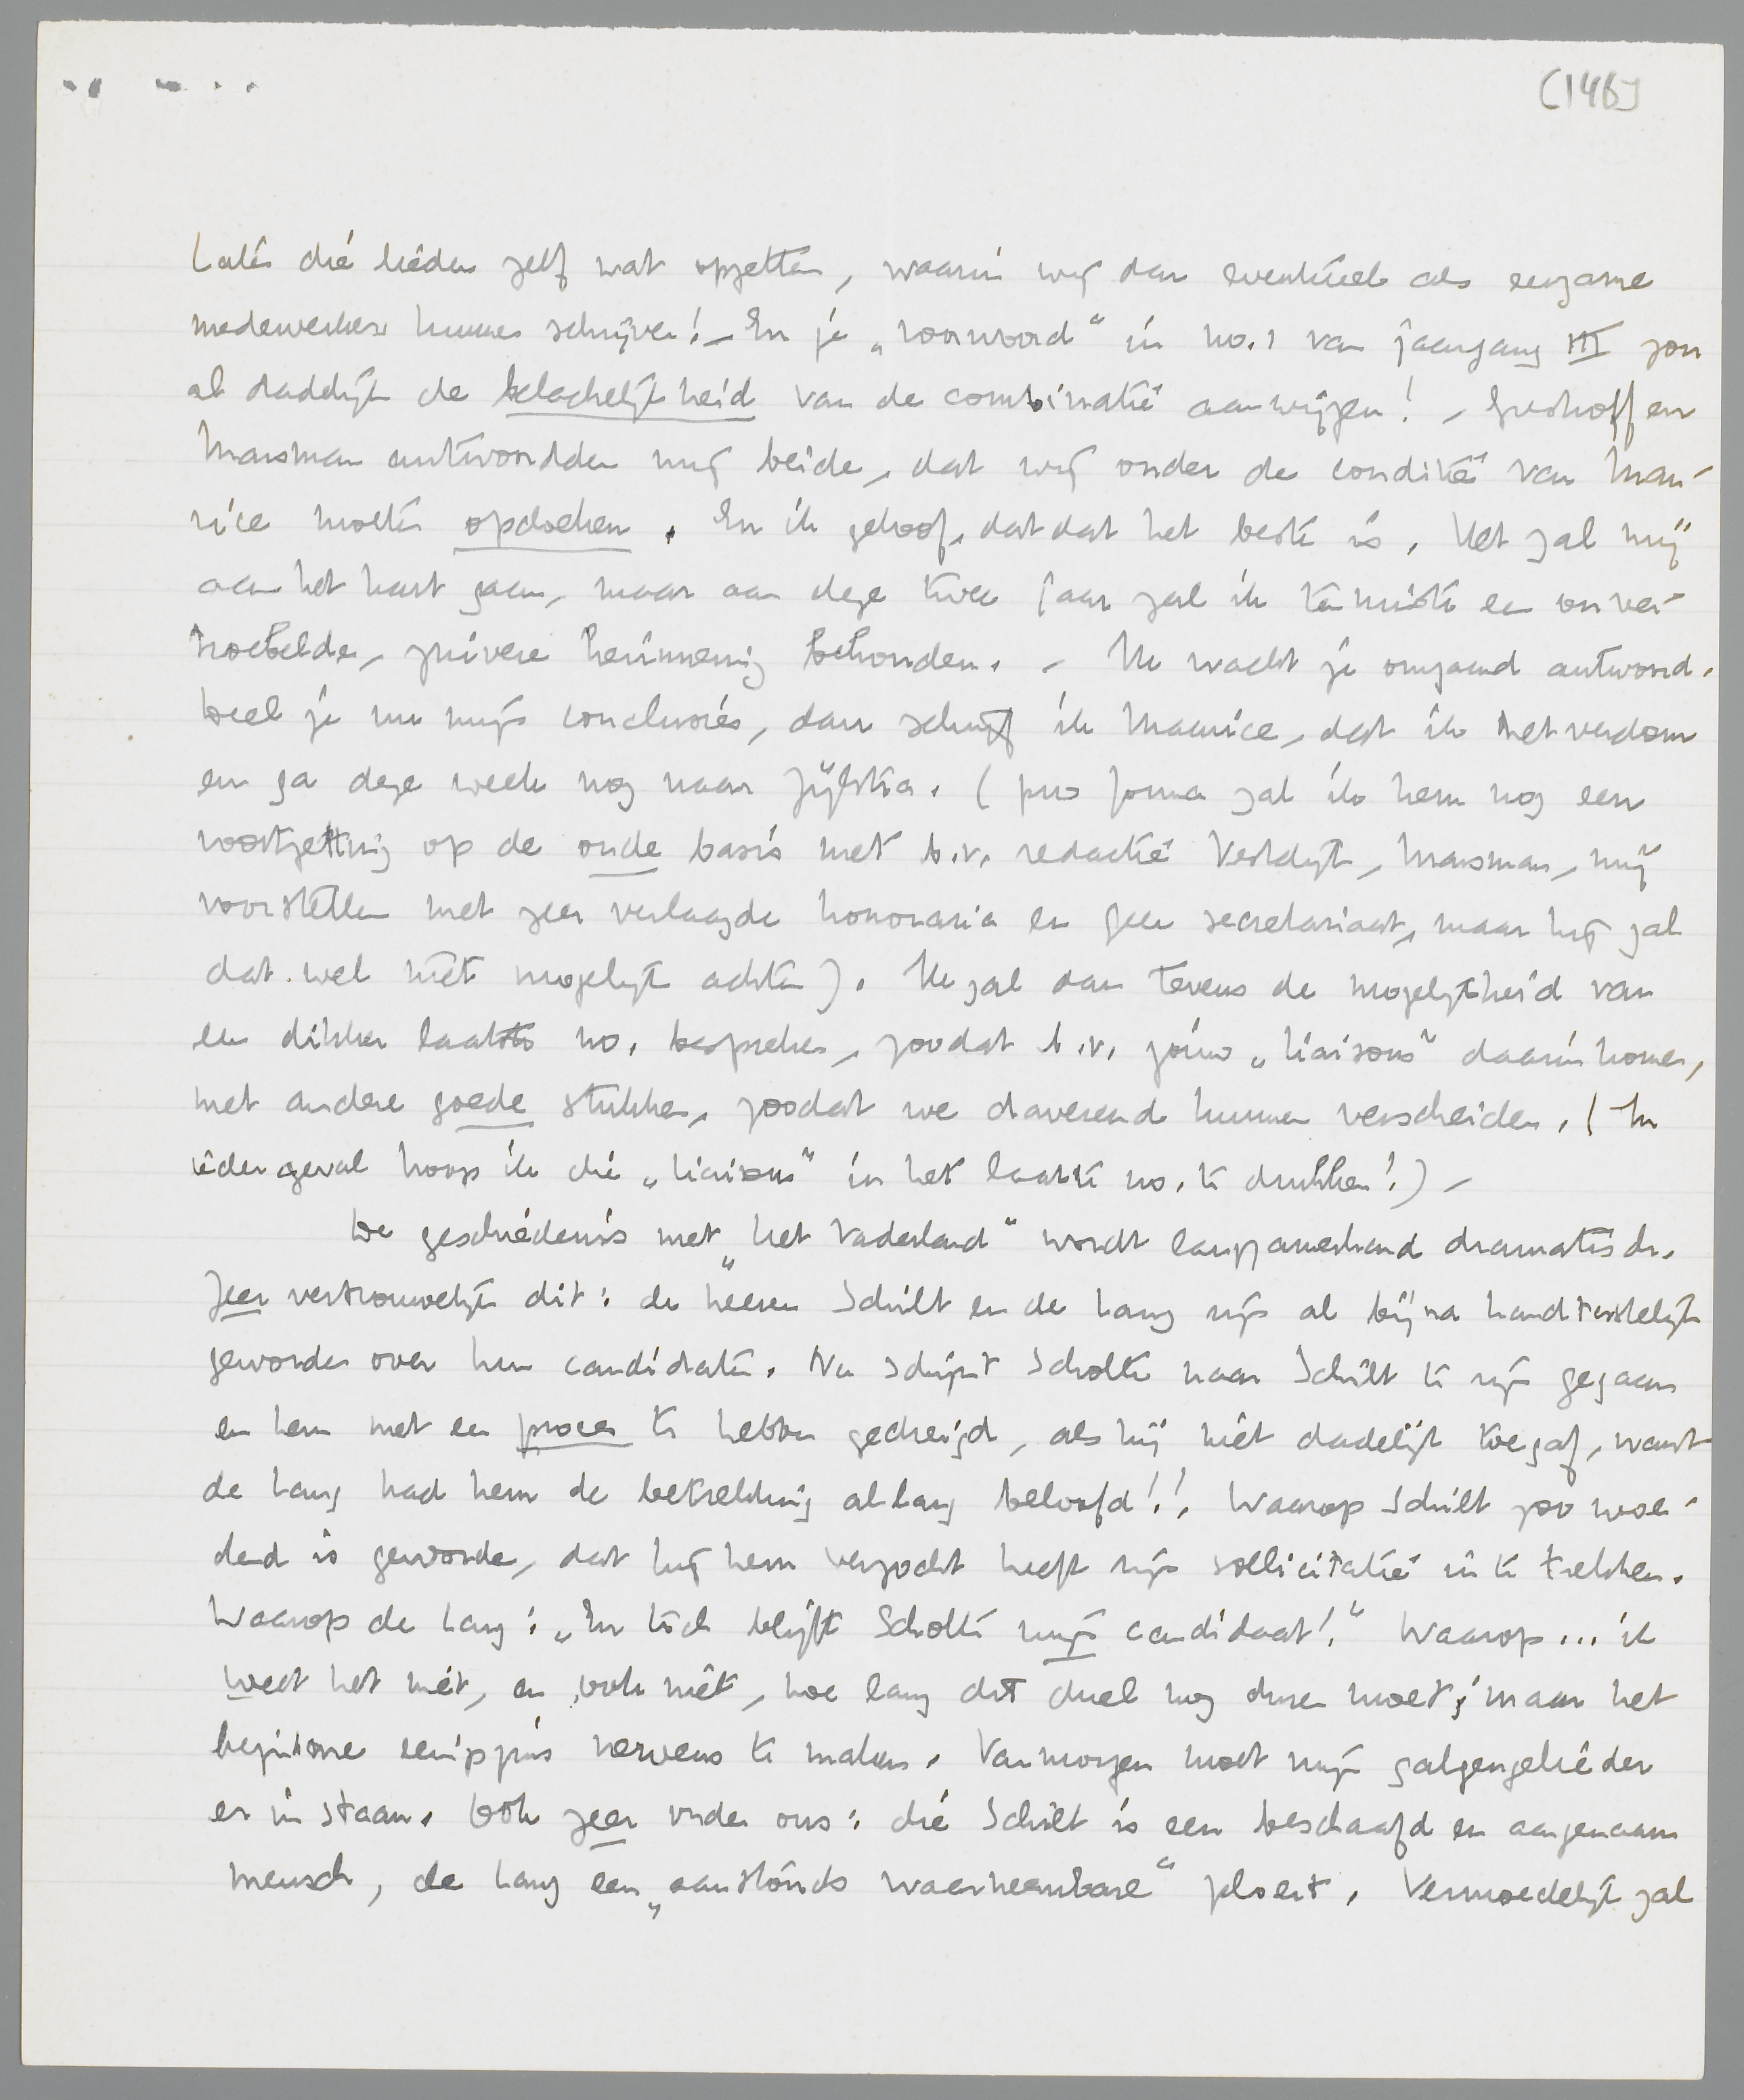 (146)
Laten die lieden zelf wat opzetten, waarin wij dan eventueel als eenzame
medewerkers kunnen schrijven! – En je „voorwoord" in no. 1 van jaargang III zou
al dadelijk de belachelijkheid van de combinatie aanwijzen! – Greshoff en
Marsman antwoordden mij beide, dat wij onder de conditie van Mau-
rice moeten opdoeken. En ik geloof, dat dat het beste is. Het zal mij
aan het hart gaan, maar aan deze twee jaar zal ik tenminste een onver-
troebelde, zuivere herinnering behouden. – Nu wacht je omgaand antwoord.
Deel je nu mijn conclusies, dan schrijf ik Maurice, dat ik het verdom
en ga deze week nog naar Zijlstra. (pro forma zal ik hem nog een
voortzetting op de oude basis met b.v. redactie Vestdijk, Marsman, mij
voorstellen met zeer verlaagde honoraria en geen secretariaat, maar hij zal
dat wel niet mogelijk achten). Ik zal dan tevens de mogelijkheid van
een dikker laatste no. bespreken, zoodat b.v. jouw „liaisons" daarin komen,
met andere goede stukken, zoodat we daverend kunnen verscheiden. (In
ieder geval hoop ik die „liaisons" in het laatste no. te drukken!) –
De geschiedenis met „het Vaderland" wordt langzamerhand dramatisch.
Zeer vertrouwelijk dit: de heeren Schilt en de Lang zijn al bijna handtastelijk
geworden over hun candidaten. Nu schijnt Scholte naar Schilt te zijn gegaan
en hem met een proces te hebben gedreigd, als hij niet dadelijk toegaf, want
de Lang had hem de betrekking al lang beloofd!! Waarop Schilt zoo woe-
dend is geworden, dat hij hem verzocht heeft zijn sollicitatie in te trekken.
Waarop de Lang: „En toch blijft Scholte mijn candidaat!" Waarop... ik
weet het niet, en ook niet, hoe lang dit duel nog duren moet; maar het
begint me eenigszins nerveus te maken. Vanmorgen moet mijn galgengelieder
er in staan. Ook zeer onder ons: die Schilt is een beschaafd en aangenaam
mensch, de Lang een „aanstonds waarneembare" ploert. Vermoedelijk zal